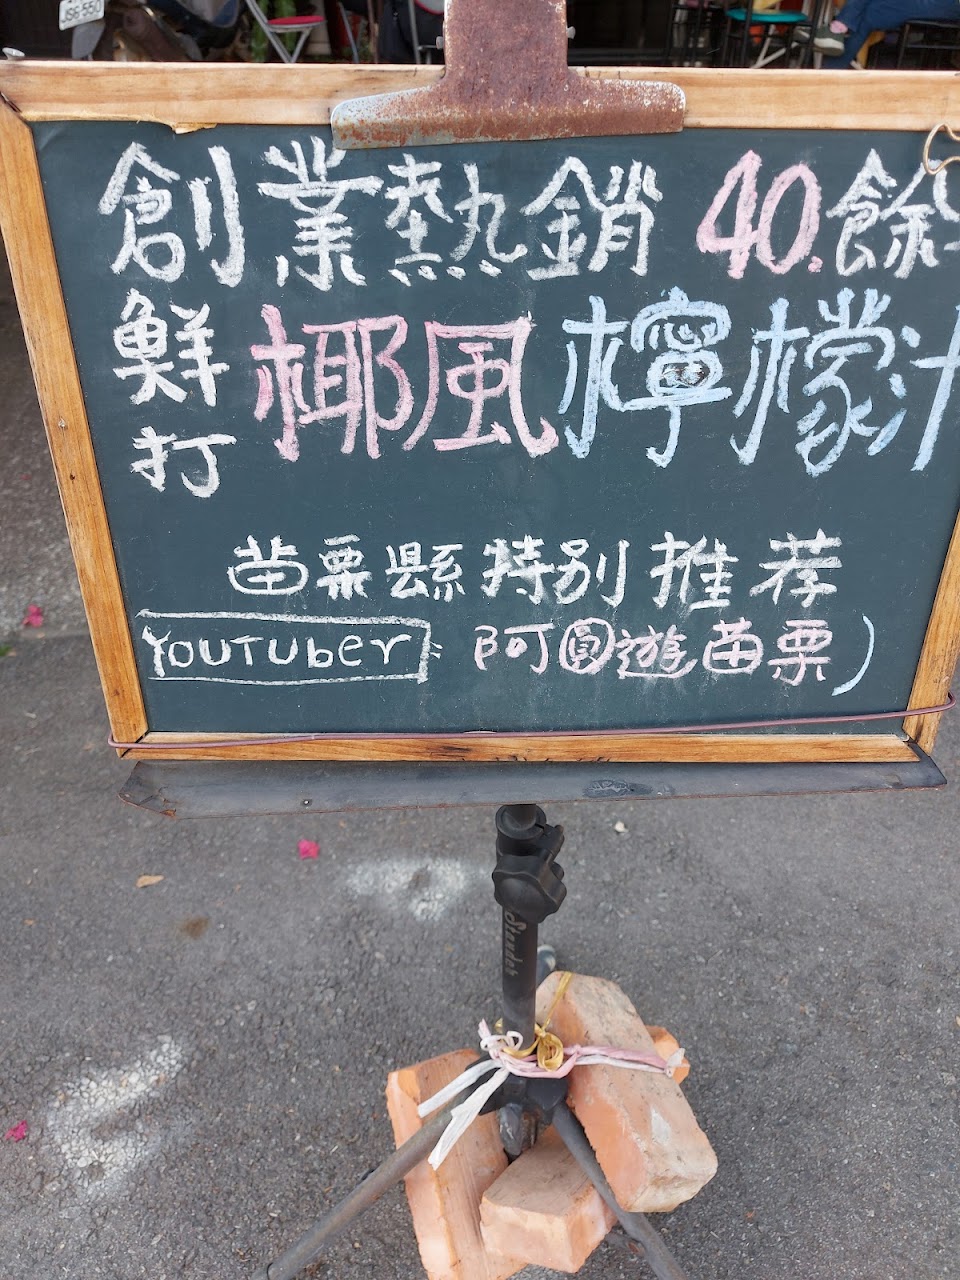 創業熱銷 40.餘
鮮打 椰風檸檬汁
苗栗縣特別推荐
YOUTUBER: 阿圓遊苗栗)
Stander